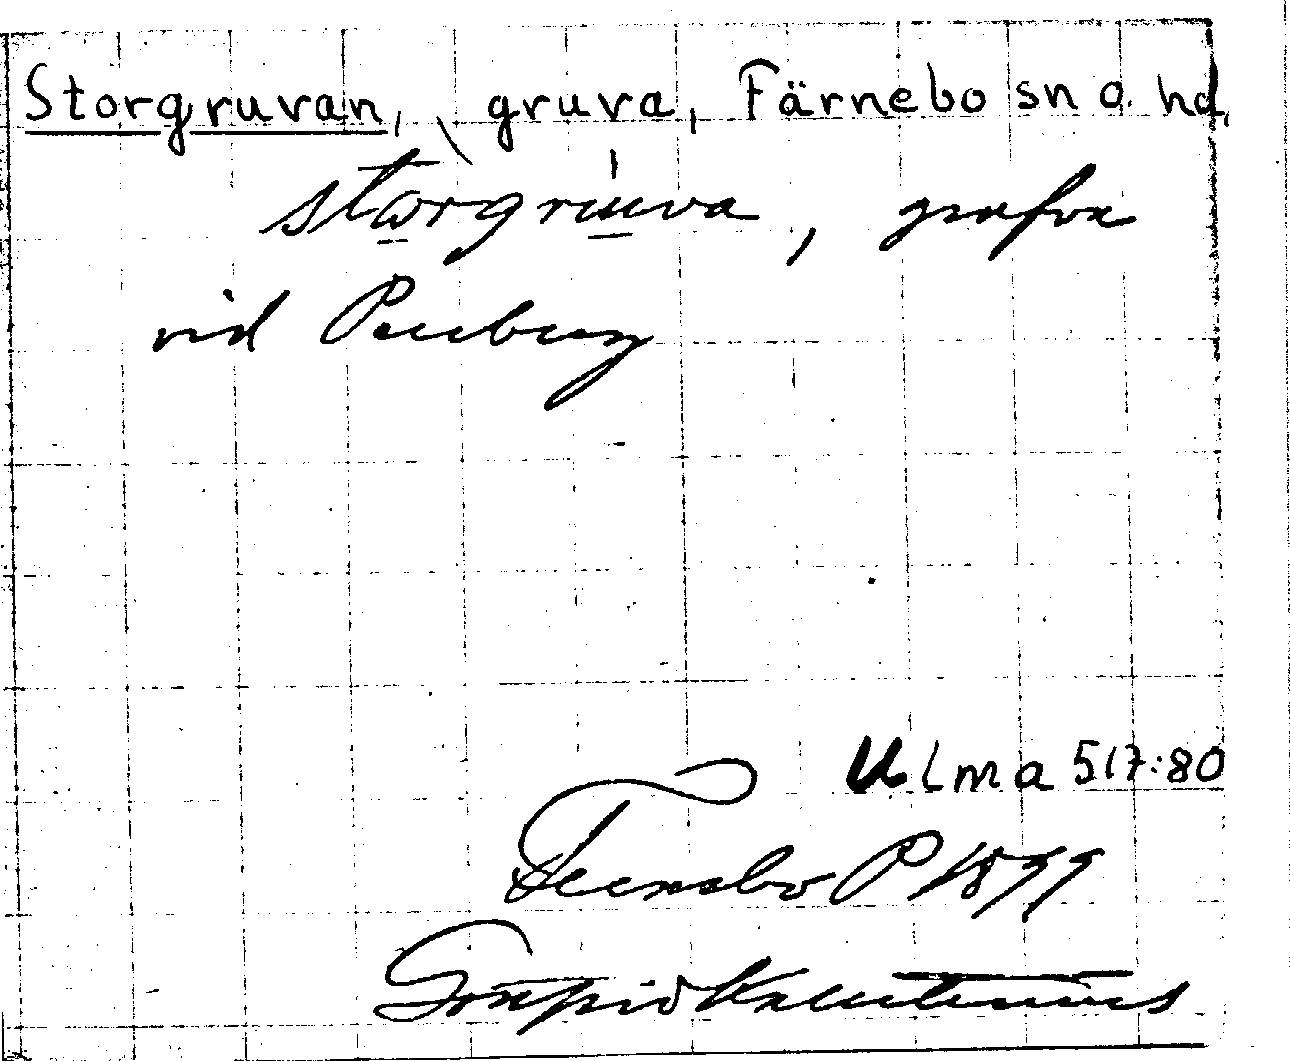 Storgruvan, gruva, Färnebo sn o. hd,
storgruva, grufva
vid Persberg
Ulma 517:80
Fernebo P 1899
Gottfrid Kallstenius